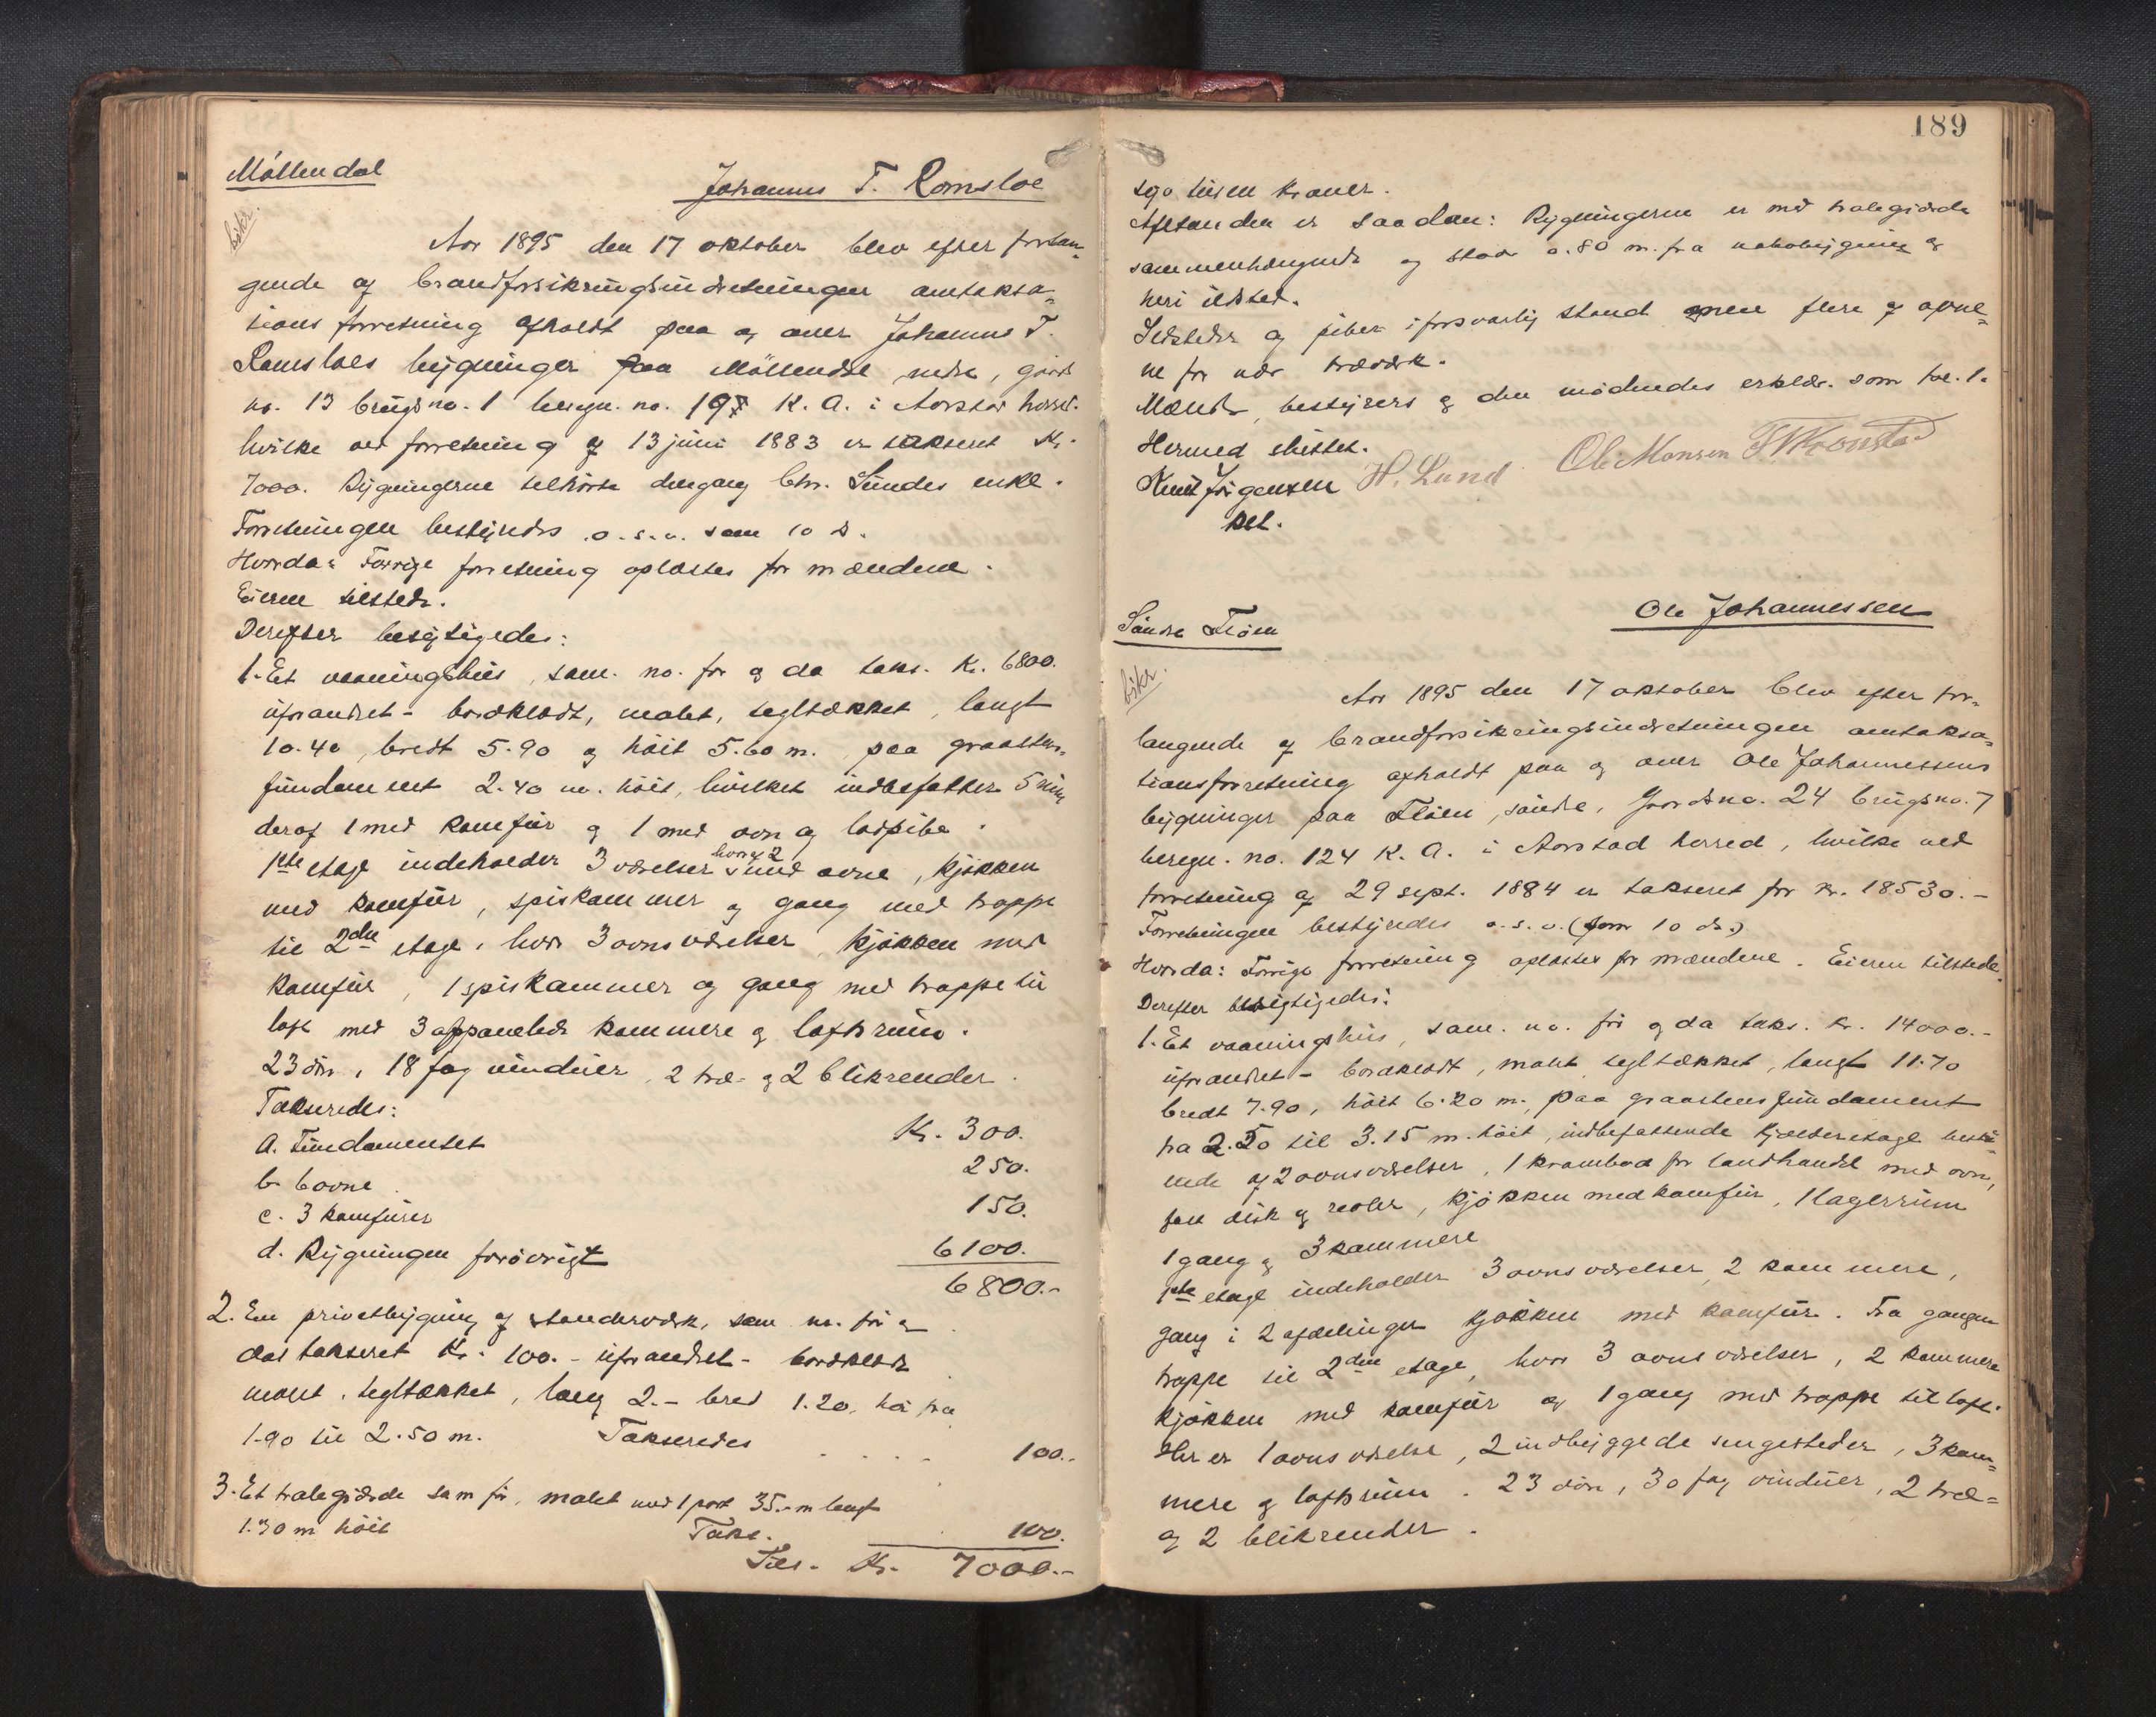 Möllendal
Johannes T. Romsloe
bskr.
Aar 1895 den 17 oktober blev efter forlan-
gende af brandforsikringsindretningen omtaksa-
tions forretning afholdt paa og over Johannes T.
Romsloes bygninger paa Möllendal nedre, gaards
no. 13 brugsno. 1 beregn. no. 197 K. A. i Aarstad herred.
hvilke ved forretning af 13 juni 1883 er takseret Kr.
7000. Bygningerne tilhörte dengang Chr. Sundes enke.
Forretningen bestyredes o. s. v. som 10 ds.
Hvorda: Forrige forretning oplæstes for mændene.
Eieren tilstede.
Derefter besigtigedes:
1. Et vaaningshus, sam. no. för og da taks. Kr. 6800.
uforandret - bordklædt, malet, tegltækket, langt
10.40, bredt 5.90 og höit 5.60 m. paa graastens-
fundament 2.40 m. höit, hvilket indbefatter 5 rum
deraf 1 med komfur og 1 med ovn og ladpibe.
1ste etage indeholder 3 værelser hvoraf 2 med ovne, kjökken
med komfur, spiskammer og gang med trappe
til 2den etage, hvor 3 ovnsværelser, kjökken med
komfur, 1 spiskammer og gang med trappe til
loft med 3 afpanelede kammere og loftsrum.
23 dör, 18 fag vinduer, 2 træ- og 2 blikrender.
Takseredes:
a. Fundamentet Kr. 300.
b. 6 ovne 250.
c. 3 komfurer 150.
d. Bygningen forövrigt 6100.
6800.-
2. En privetbygning af standerværk, sam. no. för og
da takseret Kr. 100.- uforandret - bordklædt
malet, tegltækket, lang 2.- bred 1.20, höi fra
1.90 til 2.50 m. Takseredes 100.-
3. Et stakegjærde sam för, malet med 1 port 35.- m langt
1.30 m höit Taks. 100.
Tils. Kr. 7000.-
189
syv tusen kroner.
Afstanden er saadan: Bygningerne er med stakegjærde
sammenhængende og staar 0.80 m. fra nabobygning og
heri ildsted.
Ildsteder og piber i forsvarlig stand men flere af ovne-
ne for nær træværk.
Mænds, bestyrers og den mödendes erklær. som fol. 1.
Hermed sluttet.
Knut Jörgensen H. Lund Ole Monsen T. Kronstad
kst.
Söndre Flöen
Ole Johannessen
bskr.
Aar 1895 den 17 oktober blev efter for-
langende af brandforsikringsindretningen omtaksa-
tionsforretning afholdt paa og over Ole Johannessens
bygninger paa Flöen, söndre, Gaardsno. 24 brugsno. 7
beregn. no. 124 K. A. i Aarstad herred, hvilke ved
forretning af 29 sept. 1884 er takseret for kr. 18530.-
Forretningen bestyredes o. s. v. (som 10 ds.)
Hvorda: Forrige forretning oplæstes for mændene. Eieren tilstede.
Derefter besigtigedes:
1. Et vaaningshus, sam. no. för og da taks. kr. 14000.-
uforandret - bordklædt, malet tegltækket, langt 11.70
bredt 7.90, höit 6.20 m. paa graastensfundament
fra 2.50 til 3.15 m. höit, indbefattende kjælderetage bestaa-
ende af 2 ovnsværelser, 1 krambod for landhandel med ovn,
fast disk og reoler, kjökken med komfur, 1 lagerrum
1 gang og 3 kammere
1ste etage indeholder 3 ovnsværelser, 2 kammere,
gang i 2 afdelinger kjökken med komfur. Fra gangen
trappe til 2den etage, hvor 3 ovnsværelser, 2 kammere
kjökken med komfur og 1 gang med trappe til loft.
Her er 1 ovnsværelse, 2 indbyggede sengesteder, 3 kam-
mere og loftsrum. 23 dör, 30 fag vinduer, 2 træ-
og 2 blikrender.